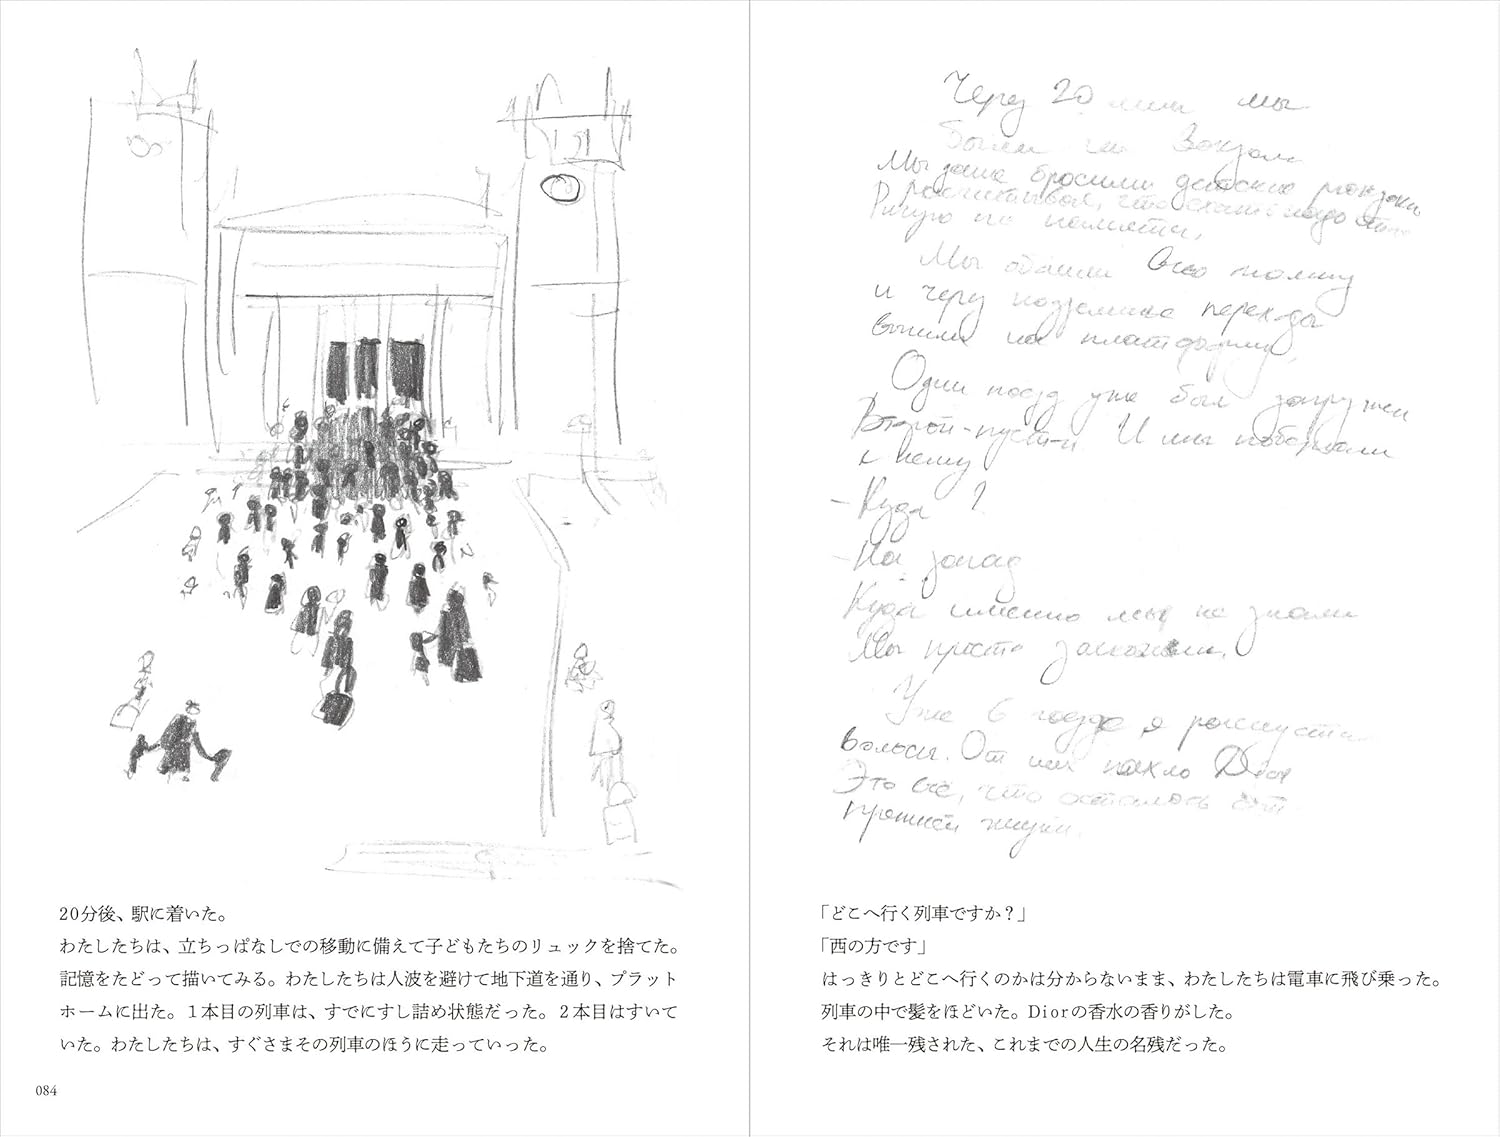 20分後、駅に着いた。
わたしたちは、立ちっぱなしでの移動に備えて子どもたちのリュックを捨てた。
記憶をたどって描いてみる。わたしたちは人波を避けて地下道を通り、プラット
ホームに出た。1本目の列車は、すでにすし詰め状態だった。2本目はすいて
いた。わたしたちは、すぐさまその列車のほうに走っていった。
084
Через 20 мин мы
были на Вокзале
Мы даже бросили детские рюкзаки
Рассчитывая, что ехать надо
Рисую по памяти.
Мы обошли всю толпу
и через подземные переходы
вышли на платформу.
Один поезд уже был загружен
Второй - пустой И мы побежали
к нему
- Куда ?
- На запад
Куда именно мы не знали
Мы просто
Уже в поезде я распустила
волосы. От них пахло Dior
Это всё, что осталось от
прошлой жизни.
「どこへ行く列車ですか？」
「西の方です」
はっきりとどこへ行くのかは分からないまま、わたしたちは電車に飛び乗った。
列車の中で髪をほどいた。Diorの香水の香りがした。
それは唯一残された、これまでの人生の名残だった。